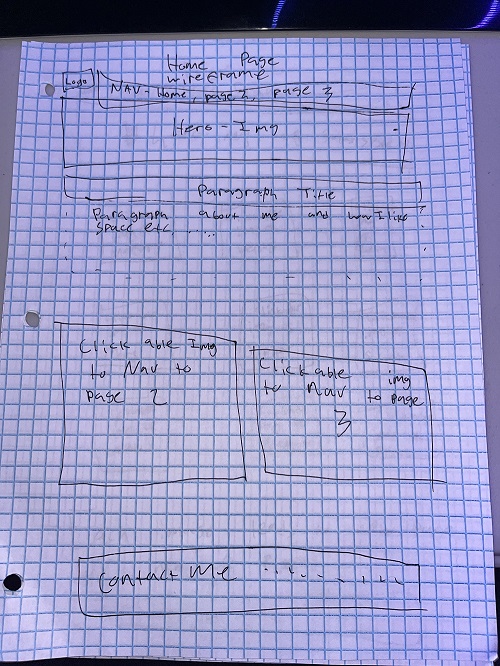 Home Page
wireframe
Logo
NAV - Home, page 2, page 3
Hero - Img
Paragraph Title
Paragraph about me and wat I like
Space etc.....
Clickable Img
to Nav to
page 2
Clickable img
to Nav to page
3
Contact Me ........